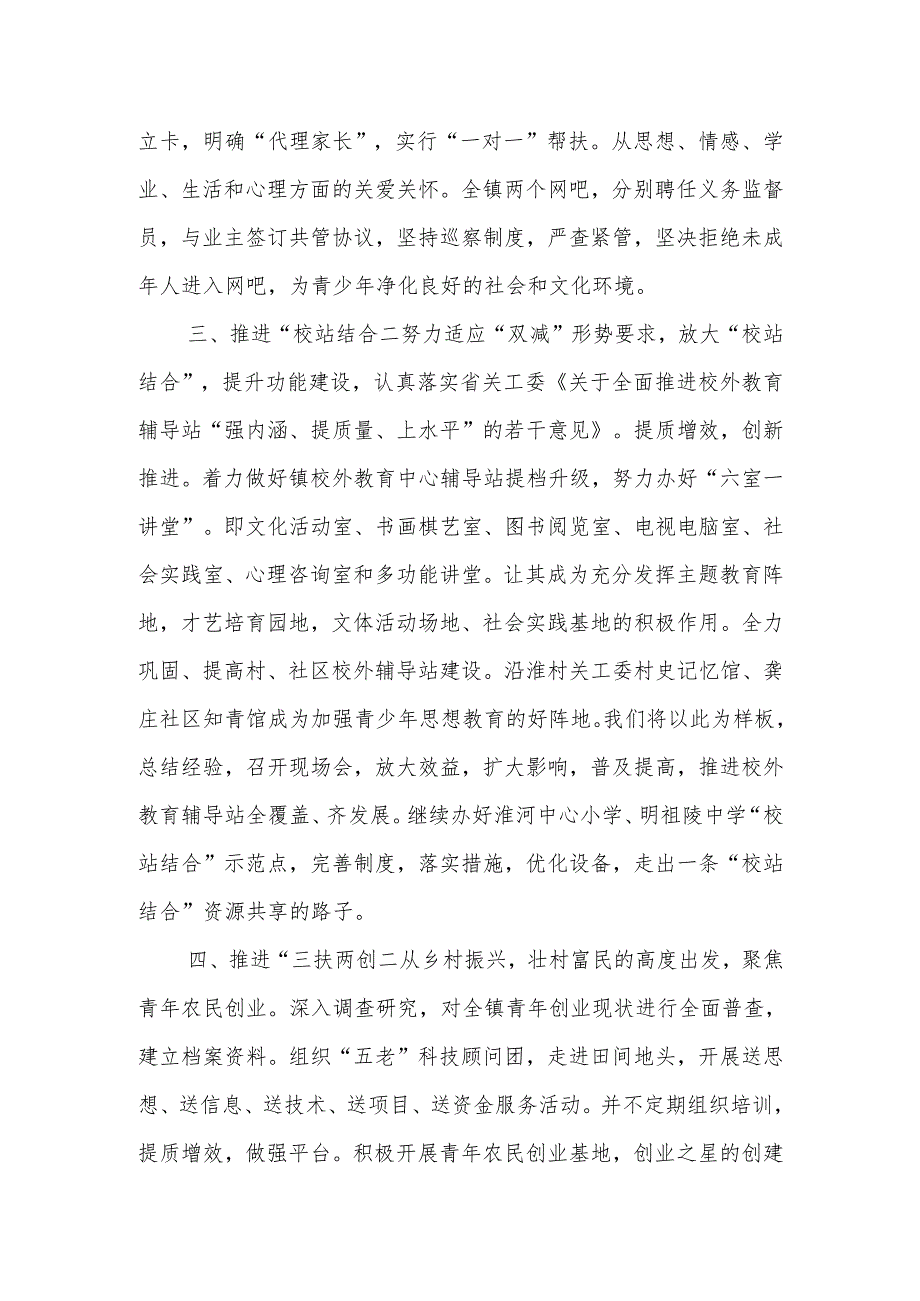 立卡，明确“代理家长”，实行“一对一”帮扶。从思想、情感、学
业、生活和心理方面的关爱关怀。全镇两个网吧，分别聘任义务监督
员，与业主签订共管协议，坚持巡察制度，严查紧管，坚决拒绝未成
年人进入网吧，为青少年净化良好的社会和文化环境。
三、推进“校站结合二努力适应“双减”形势要求，放大“校站
结合”，提升功能建设，认真落实省关工委《关于全面推进校外教育
辅导站“强内涵、提质量、上水平”的若干意见》。提质增效，创新
推进。着力做好镇校外教育中心辅导站提档升级，努力办好“六室一
讲堂”。即文化活动室、书画棋艺室、图书阅览室、电视电脑室、社
会实践室、心理咨询室和多功能讲堂。让其成为充分发挥主题教育阵
地，才艺培育园地，文体活动场地、社会实践基地的积极作用。全力
巩固、提高村、社区校外辅导站建设。沿淮村关工委村史记忆馆、龚
庄社区知青馆成为加强青少年思想教育的好阵地。我们将以此为样板，
总结经验，召开现场会，放大效益，扩大影响，普及提高，推进校外
教育辅导站全覆盖、齐发展。继续办好淮河中心小学、明祖陵中学“校
站结合”示范点，完善制度，落实措施，优化设备，走出一条“校站
结合”资源共享的路子。
四、推进“三扶两创二从乡村振兴，壮村富民的高度出发，聚焦
青年农民创业。深入调查研究，对全镇青年创业现状进行全面普查，
建立档案资料。组织“五老”科技顾问团，走进田间地头，开展送思
想、送信息、送技术、送项目、送资金服务活动。并不定期组织培训，
提质增效，做强平台。积极开展青年农民创业基地，创业之星的创建